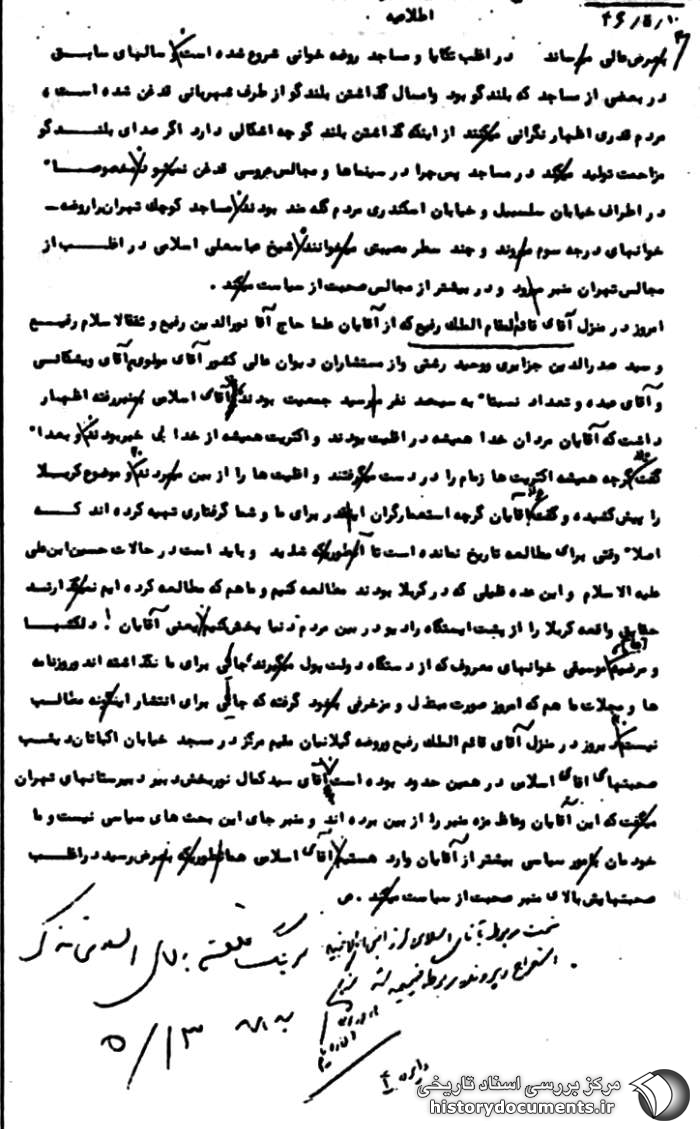 اطلاعیه
۴۶/۵/۱۰
بعرض عالی میرساند در اغلب تکایا و مساجد روضه خوانی شروع شده است و سالهای سابق
در بعضی از مساجد که بلندگو بود وامسال گذاشتن بلندگو از طرف شهربانی قدغن شده است ،
مردم قدری اظهار نگرانی میکنند از اینکه گذاشتن بلند گو چه اشکالی دارد اگر صدای بلندگو
مزاحمت تولید میکند در مساجد پس چرا در سینماها و مجالس عروسی قدغن نمیشود مخصوصا"
در اطراف خیابان سلسبیل و خیابان اسکندری مردم گله مند بودند مساجد کوچک تهران را روضه-
خوانهای درجه سوم میروند و چند سطر مصیبتی میخوانند شیخ عباسعلی اسلامی در اغلب از
مجالس تهران منبر میرود و در بیشتر از مجالس صحبت از سیاست میکند .
امروز در منزل آقای قائم المقام الملک رفیع که از آقایان علما حاج آقا نورالدین رفیع و ثقةالاسلام رفیع
و سید صدرالدین جزایری ووحید رشتی واز مستشاران دیوان عالی کشور آقای مولوی آقای ویشکائی
و آقای عبده و تعداد نسبتا" به سیصد نفر میرسید جمعیت بودند آقای اسلامی بمنبر رفته اظهار
داشت که آقایان مردان خدا همیشه در اقلیت بودند و اکثریت همیشه از خدا بی خبر بودند و بعدا"
گفت گرچه همیشه اکثریت ها زمام را در دست میگرفتند و اقلیت ها را از بین میبردند و موضوع کربلا
را پیش کشیده و گفت آقایان گرچه استعمارگران اینقدر برای ما و شما گرفتاری تهیه کرده اند که
اصلا" وقتی برای مطالعه تاریخ نمانده است تا آنطوریکه شاید و باید است در حالات حسین ابن علی
علیه الاسلام و این عده قلیلی که در کربلا بودند مطالعه کنیم و ما هم که مطالعه کرده ایم نمیگذارند
حقایق واقعه کربلا را از پشت ایستگاه رادیو در بین مردم دنیا پخش کنیم یعنی آقایان ! دلکشها
و مرضیه ها موسیقی خوانهای معروف که از دستگاه دولت پول میگیرند جائی برای ما نگذاشته اند وروزنامه
ها و مجلات ما هم که امروز صورت مبتذل و مزخرفی بخود گرفته که جائی برای انتشار اینگونه مطالب
نیست دیروز در منزل آقای قائم الملک رفیع وروضه گیلانیان مقیم مرکز در مسجد خیابان اکباتان دیشب
صحبتهای اقای اسلامی در همین حدود بوده است آقای سید کمال نوربخش دبیر دبیرستانهای تهران
میگفت که این آقایان وعاظ مزه منبر را از بین برده اند و منبر جای این بحث های سیاسی نیست و ما
خودمان بامور سیاسی بیشتر از آقایان وارد هستیم آقای اسلامی همانطوریکه بعرض رسید در اغلب
صحبتهایش بالای منبر صحبت از سیاست میکند . ص
قسمت مربوط بآقای اسلامی
استخراج و پرونده مربوطه ضمیمه شود
۵/۱۳
مرکز بررسی اسناد تاریخی
historydocuments.ir